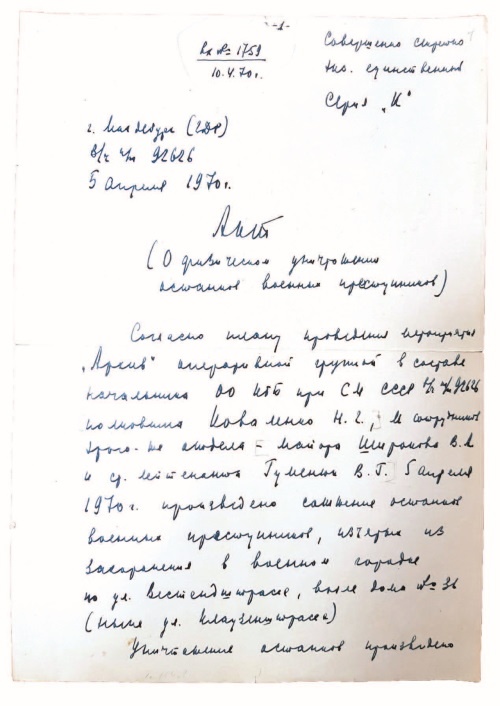 -1-
Вх № 1759
10.4.70г.
Совершенно секретно
экз. единственный
Серия „К"
г. Магдебург (ГДР)
в/ч п/п 92626
5 апреля 1970г.
Акт
(О физическом уничтожении
останков военных преступников)
Согласно плану проведения мероприятия
„Архив" оперативной группой в составе
начальника ОО КГБ при СМ СССР в/ч п/п 92626
полковника Коваленко Н.Г., и сотрудников
того-же отдела - майора Широкова В.А
и ст. лейтенанта Гуменюк В.Г. 5 апреля
1970г. произведено сожжение останков
военных преступников, изъятых из
захоронения в военном городке
по ул. Вестендштрассе, возле дома № 36
(ныне ул. Клаузенштрассе)
Уничтожение останков произведено